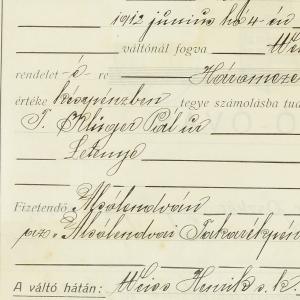 1912 junius hó 4-én
váltónál fogva
rendelet-é-re Háromeze
értéke készpénzben tegye számolásba tud
T. Klüger Pál úr
Letenye
Fizetendő Alsólendván
prz. Alsólendvai Takarékpén
A váltó hátán: Weiss Henrik s. k.